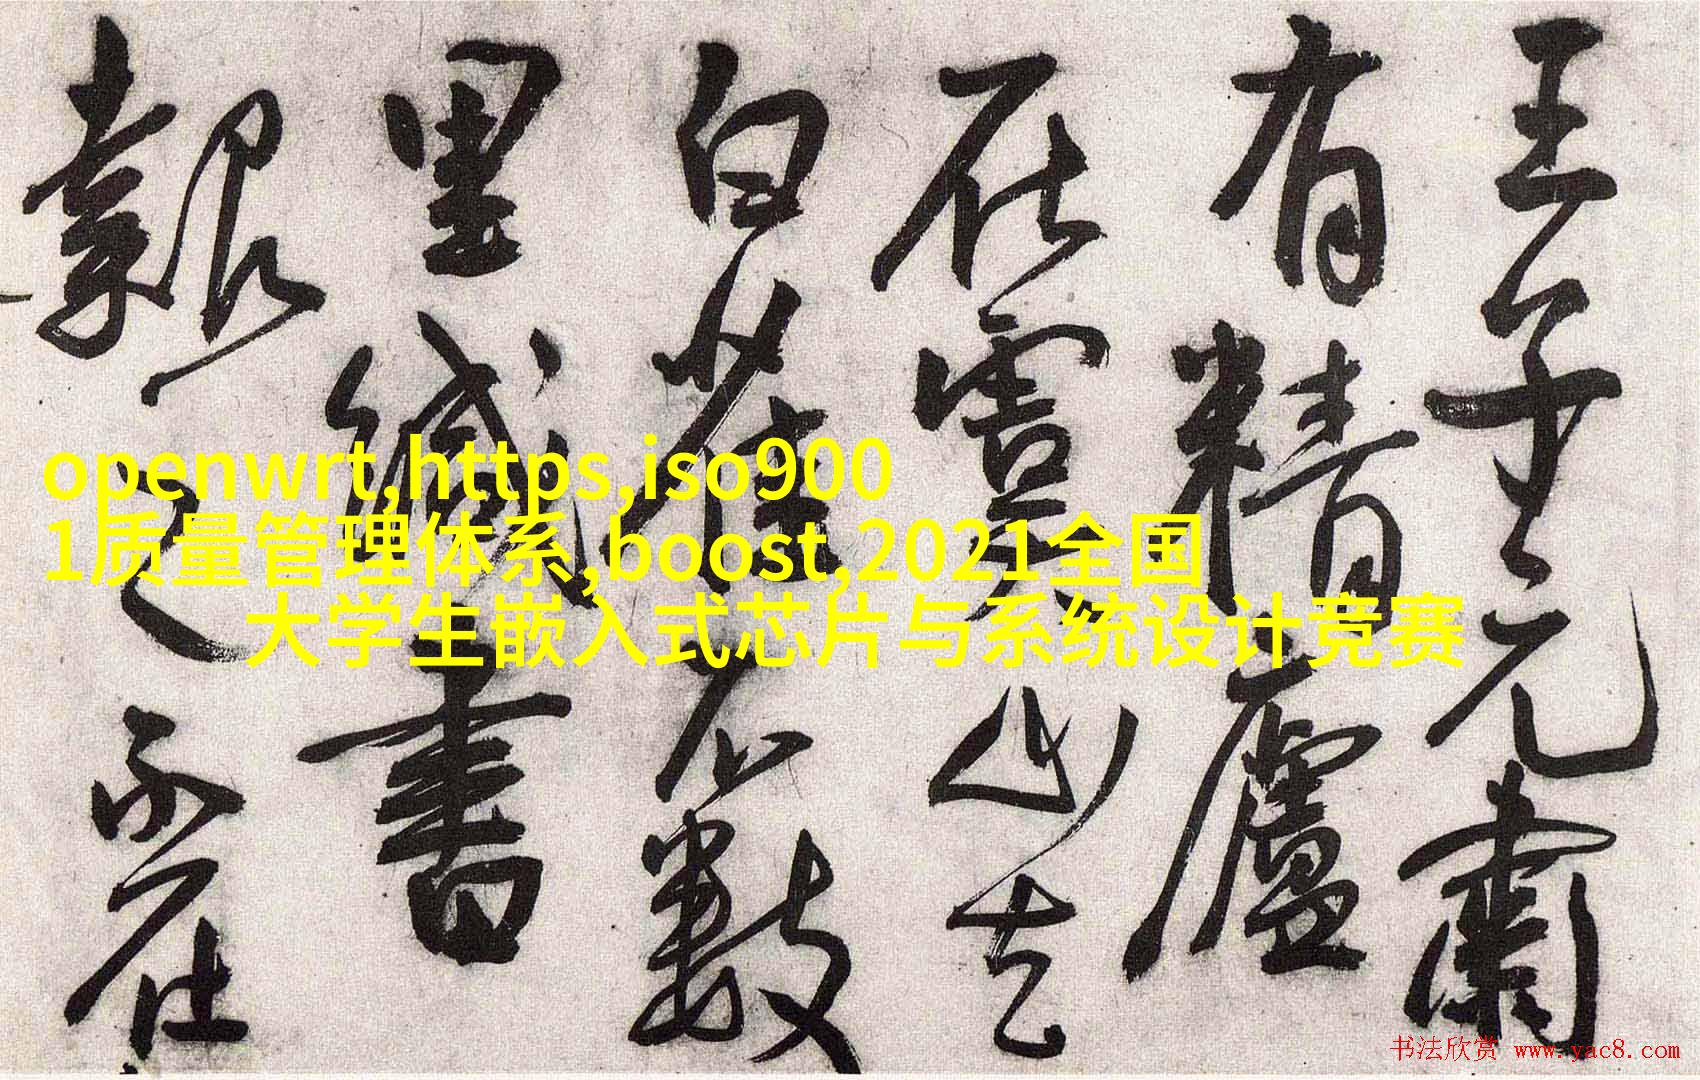 王子生元肅
有精廬
在雲
山去
白雀
數
里緘書
報之
不在
openwrt,https,iso900
1质量管理体系,boost,2021全国
大学生嵌入式芯片与系统设计竞赛
书法欣赏 www.yac8.com